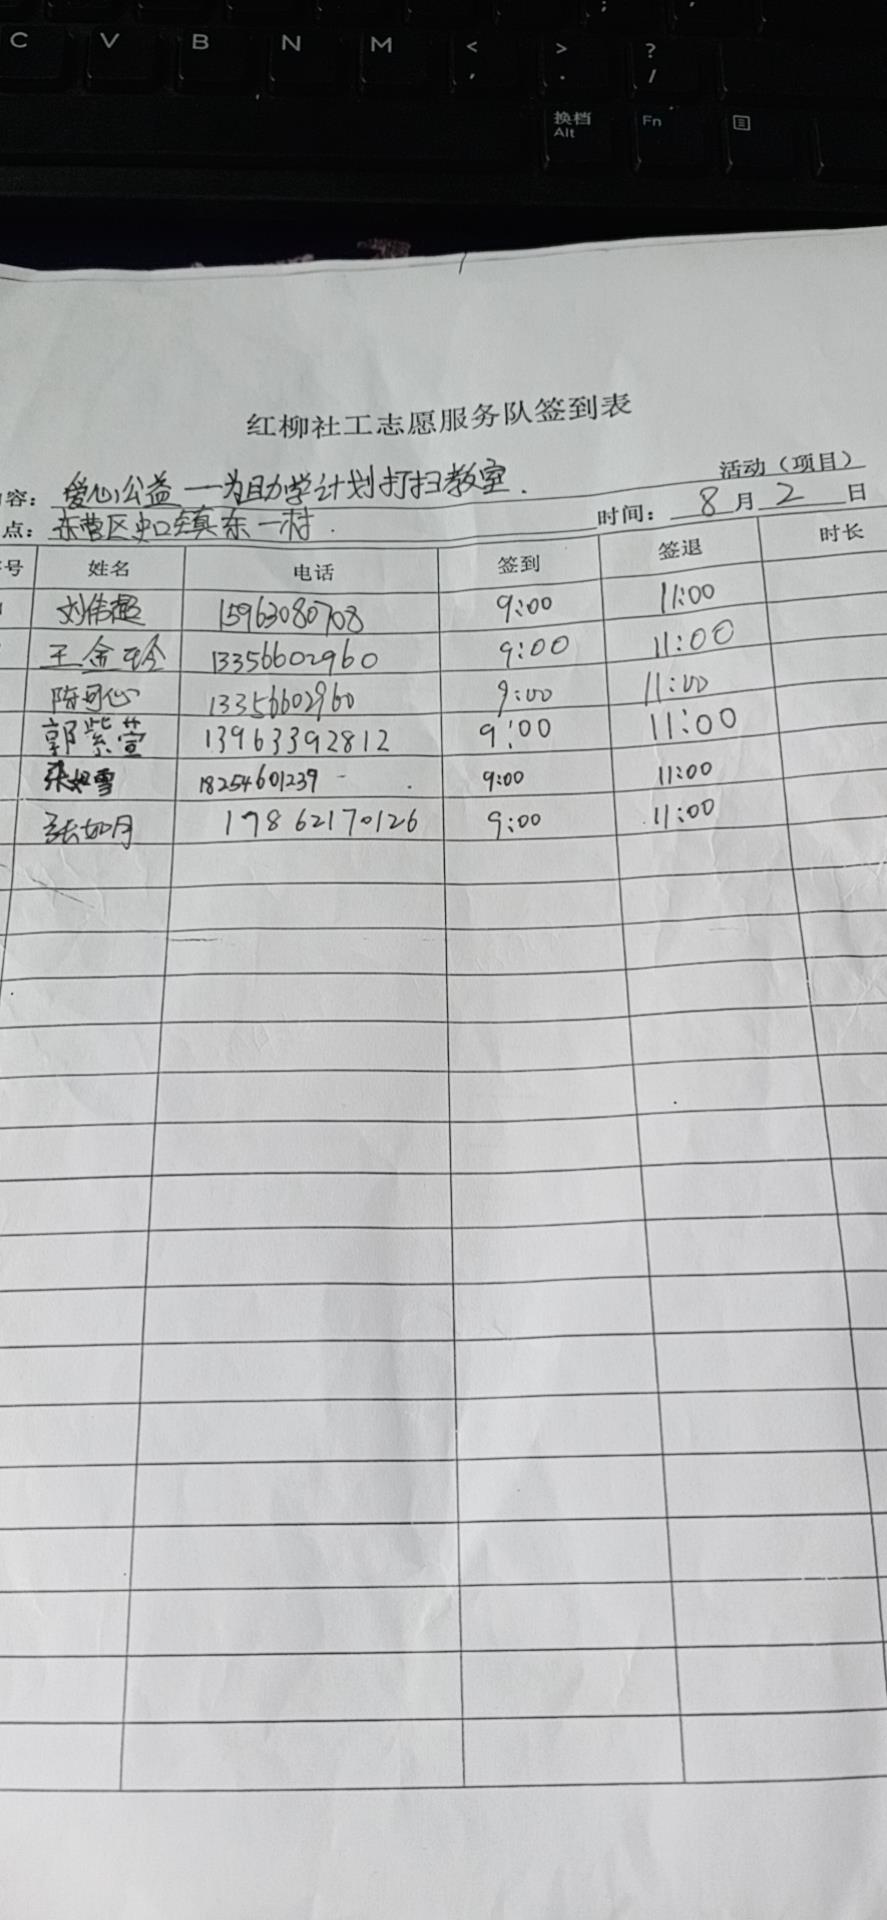 ; '
C V B N M < , > . ? /
换档 Alt Fn
红柳社工志愿服务队签到表
容: 爱心公益—为助学计划打扫教室. 活动(项目)
点: 东营区史口镇东一村. 时间: 8月2日
号 姓名 电话 签到 签退 时长
刘伟超 15963080708 9:00 11:00
王金玲 13356602960 9:00 11:00
陈可心 13356602960 9:00 11:00
郭紫萱 13963392812 9:00 11:00
张如雪 18254601239 9:00 11:00
张如月 17862170126 9:00 11:00